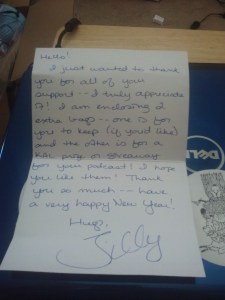 Hello!
I just wanted to thank
you for all of your
support -- I truly appreciate
it! I am enclosing 2
extra bags -- one is for
you to keep (if you'd like)
and the other is for a
KAL prize or giveaway
for your podcast! I hope
you like them! Thank
you so much -- have
a very happy New Year!
Hugs,
DELL